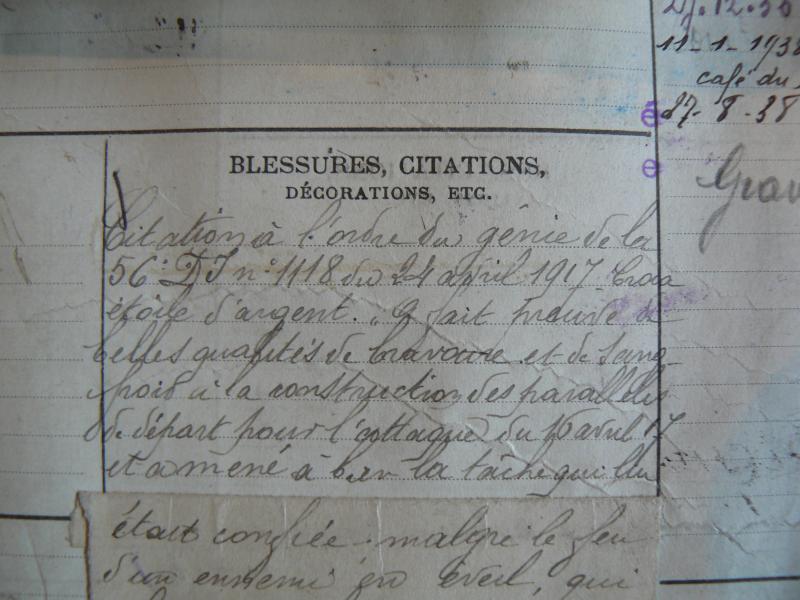 27.12.36
11-1-1938
café du
27-8-38
Grav
BLESSURES, CITATIONS,
DÉCORATIONS, ETC.
Citation à l'ordre du génie de la
56e DI n° 1118 du 24 avril 1917 Croix
étoile d'argent. "a fait preuve de
belles qualités de bravoure et de sang
froid à la construction des parallèles
de départ pour l'attaque du 16 avril 17
et a mené à bien la tâche qui lui
était confiée malgré le feu
d'un ennemi en éveil, qui